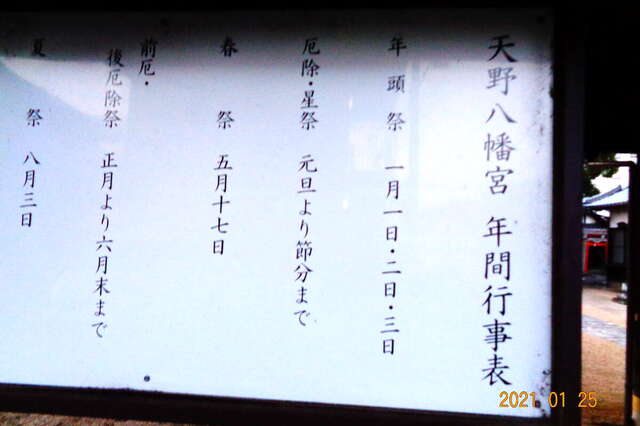 天野八幡宮 年間行事表
年頭祭 一月一日・二日・三日
厄除・星祭 元旦より節分まで
春祭 五月十七日
前厄・
後厄除祭 正月より六月末まで
夏祭 八月三日
2021 01 25